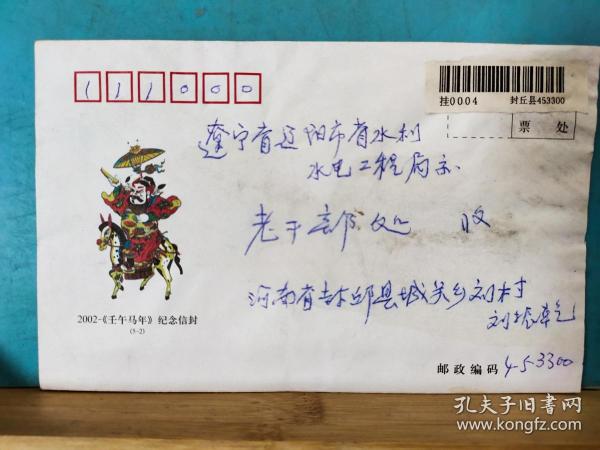 111000
挂0004 封丘县453300
票 处
辽宁省辽阳市省水利
水电工程局
老干部处 收
河南省封邱县城关乡刘村
刘振乾
2002-《壬午马年》纪念信封
(5-2)
邮政编码 453300
孔夫子旧书网
www.kongfz.com